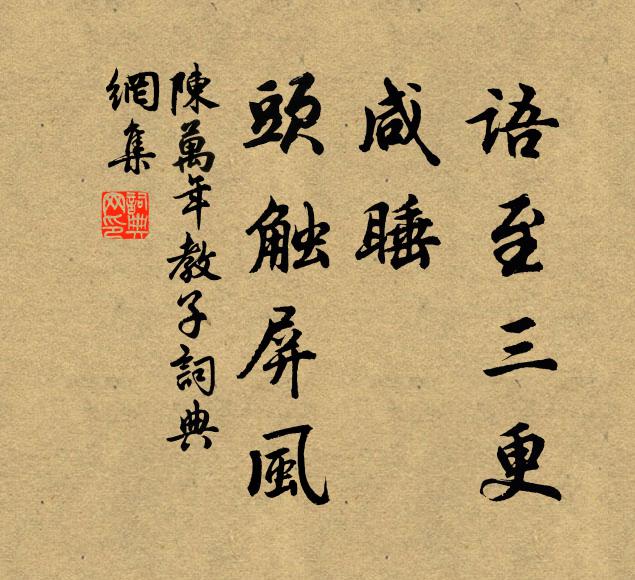 语至三更
咸睡
頭触屏風
陳萬年教子詞典
網集
詞典
网印